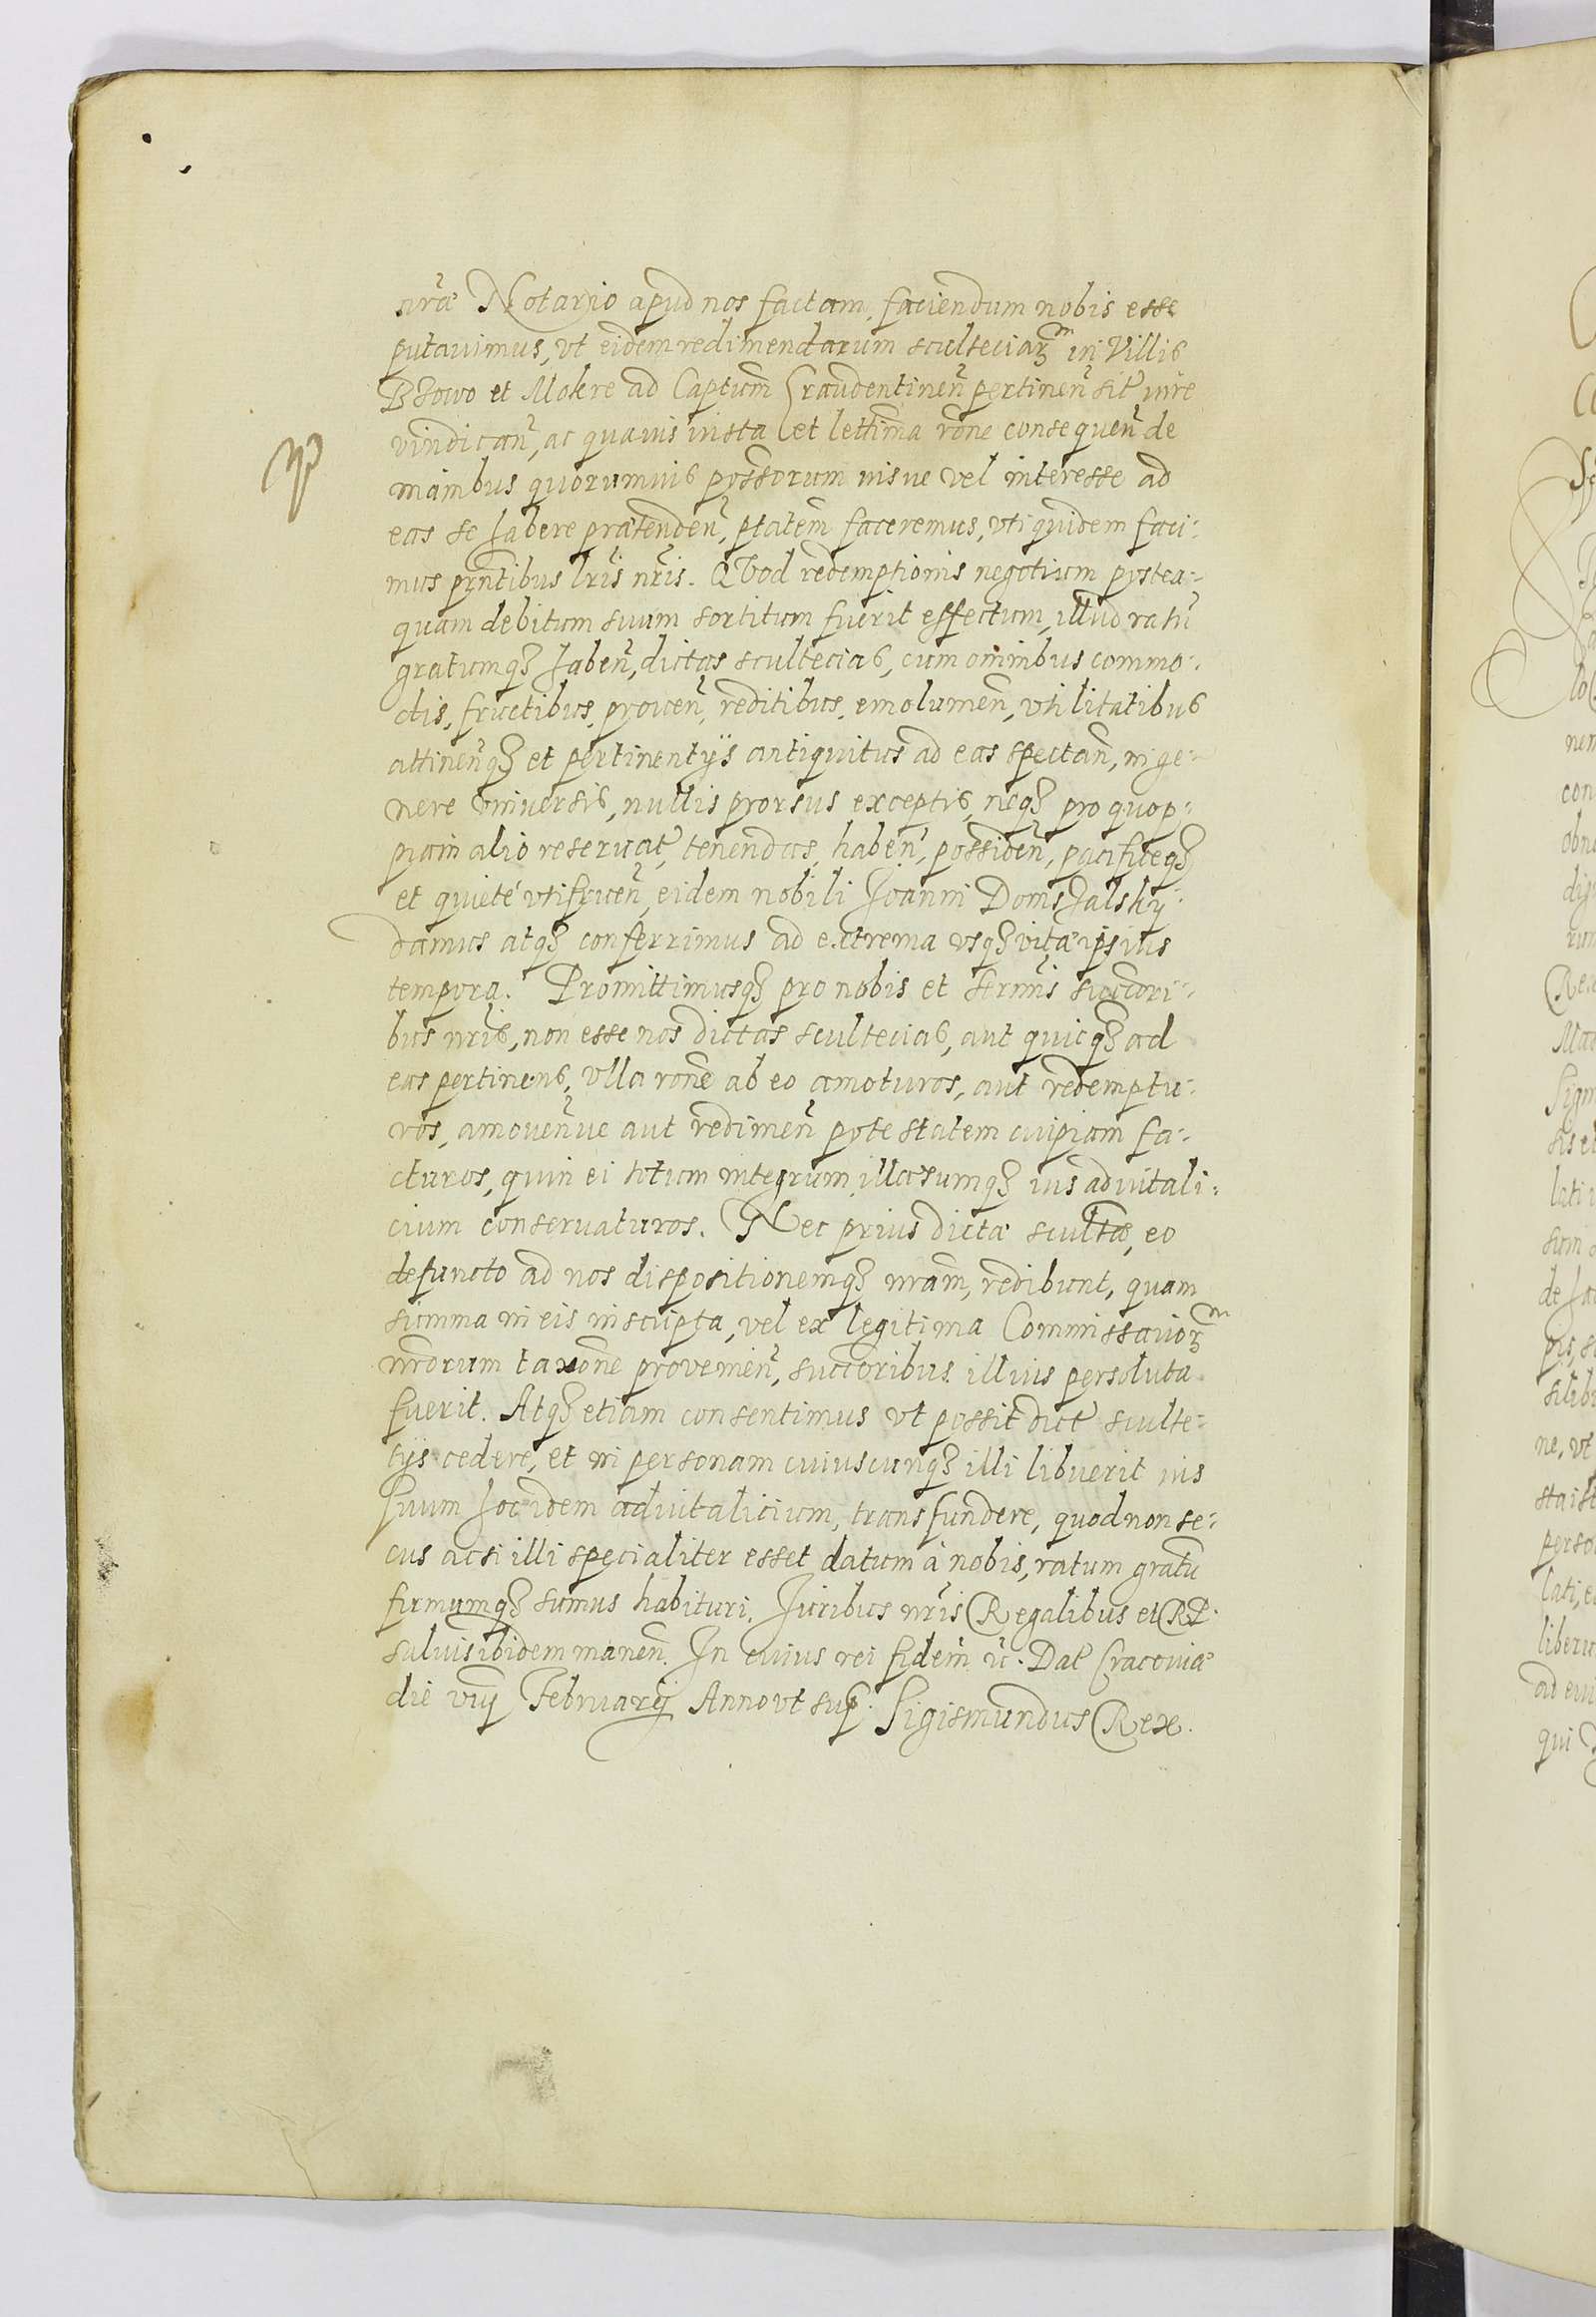 nrã Notario apud nos factam, faciendum nobis esse
putauimus, vt eidem redimendarum scultetiarum in Villis
et Mokre ad Captum Graudentinen̄ pertinen̄ siue iure
vindican̄, ac quauis iusta et lettima rõne consequen̄ de
manibus quorumuis possorum iusue vel interesse ad
eas se habere prætenden̄, ptatem faceremus, vti quidem faci:
mus pn̄tibus lris nris. Quod redemptionis negotium postea:
quam debitum suum sortitum fuerit effectum, illud ratū
gratumq₃ haben̄, dictas scultecias, cum omnibus commo:
dis, fructibus, prouen̄, reditibus, emolumen̄, vtilitatibus
attinen̄q₃ et pertinentijs antiquitus ad eas spectan̄, in ge:
nere vniuersis, nullis prorsus exceptis, neq₃ pro quop:
piam alio reseruat, tenendas, haben̄, possiden̄, pacificeq₃
et quietè vtifruen̄, eidem nobili Joanni Domshalsky:
damus atq₃ conferrimus ad extrema vsq₃ vitæ ipsius
tempora. Promittimusq₃ pro nobis et sermis succori:
bus nris, non esse nos dictas scultecias, aut quicq₃ ad
eas pertinens, vlla rone ab eo amoturos, aut redemptu:
ros, amouen̄ue aut redimen̄ potestatem cuipiam fa:
cturos, quin ei totum integrum illæsumq₃ ius aduitali:
cium conseruaturos. Nec prius dictæ scultæ, eo
defuncto ad nos dispositionemq₃ nram, redibunt, quam
summa in eis inscripta, vel ex legitima Commissariorum
nrorum taxone prouenien̄, succoribus illius persoluta
fuerit. Atq₃ etiam consentimus vt possit dict sculte:
tijs cedere, et in personam cuiuscunq₃ illi libuerit ius
suum hoc idem aduitalicium, transfundere, quod non se:
cus ac si illi specialiter esset datum à nobis, ratum gratū
firmumq₃ sumus habituri. Juribus nris Regalibus et RP.
saluis ibidem manen̄. In cuius rei fidem ꝛc. Dat Cracouiæ
die viij Februarij Anno vt sup. Sigismundus Rex.